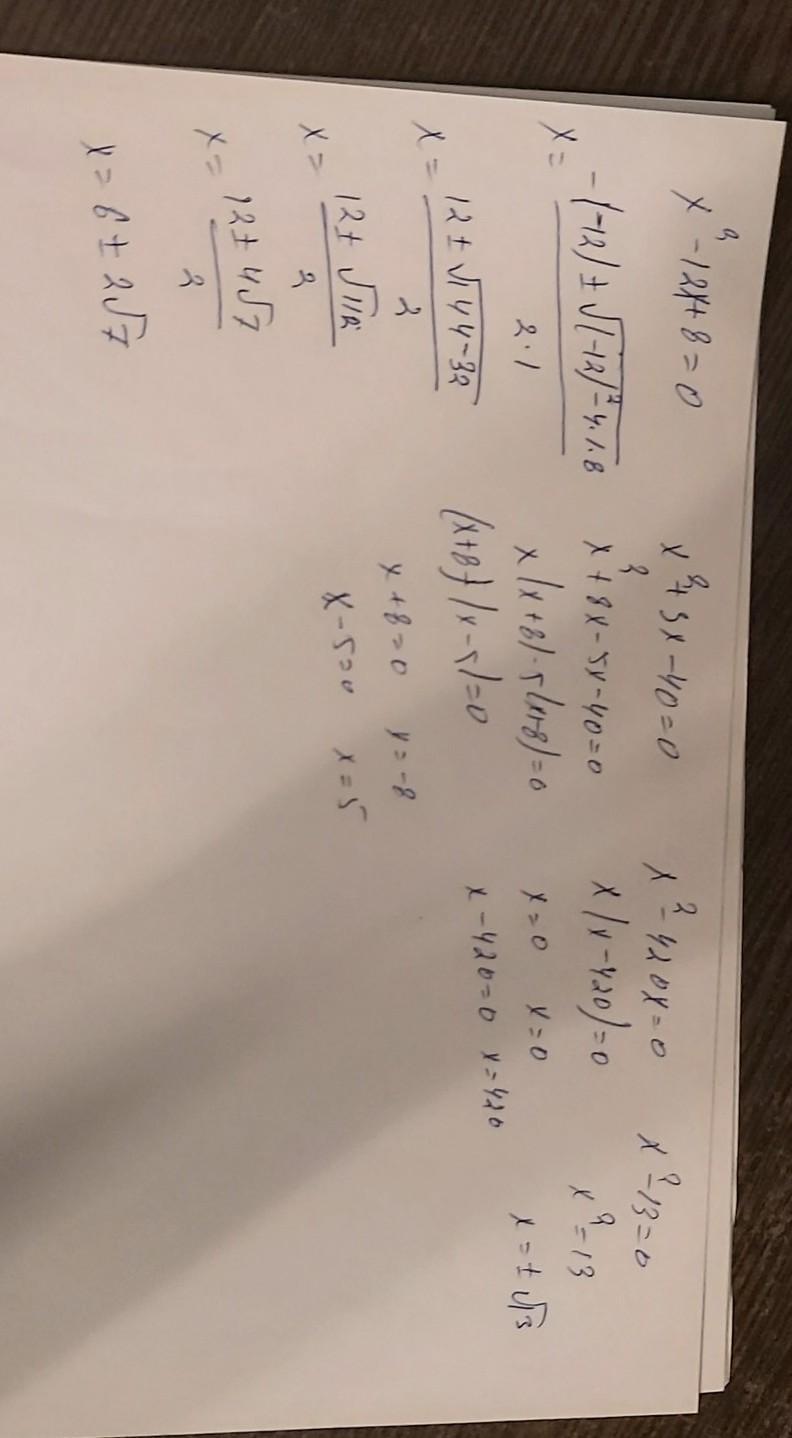 x² - 12x + 8 = 0
x = (-(-12) ± √((-12)² - 4·1·8)) / (2·1)
x = (12 ± √(144-32)) / 2
x = (12 ± √112) / 2
x = (12 ± 4√7) / 2
x = 6 ± 2√7
x² + 3x - 40 = 0
x² + 8x - 5x - 40 = 0
x(x+8) - 5(x+8) = 0
(x+8)(x-5) = 0
x + 8 = 0 x = -8
x - 5 = 0 x = 5
x² - 420x = 0
x(x-420) = 0
x = 0 x = 0
x - 420 = 0 x = 420
x² - 13 = 0
x² = 13
x = ± √13